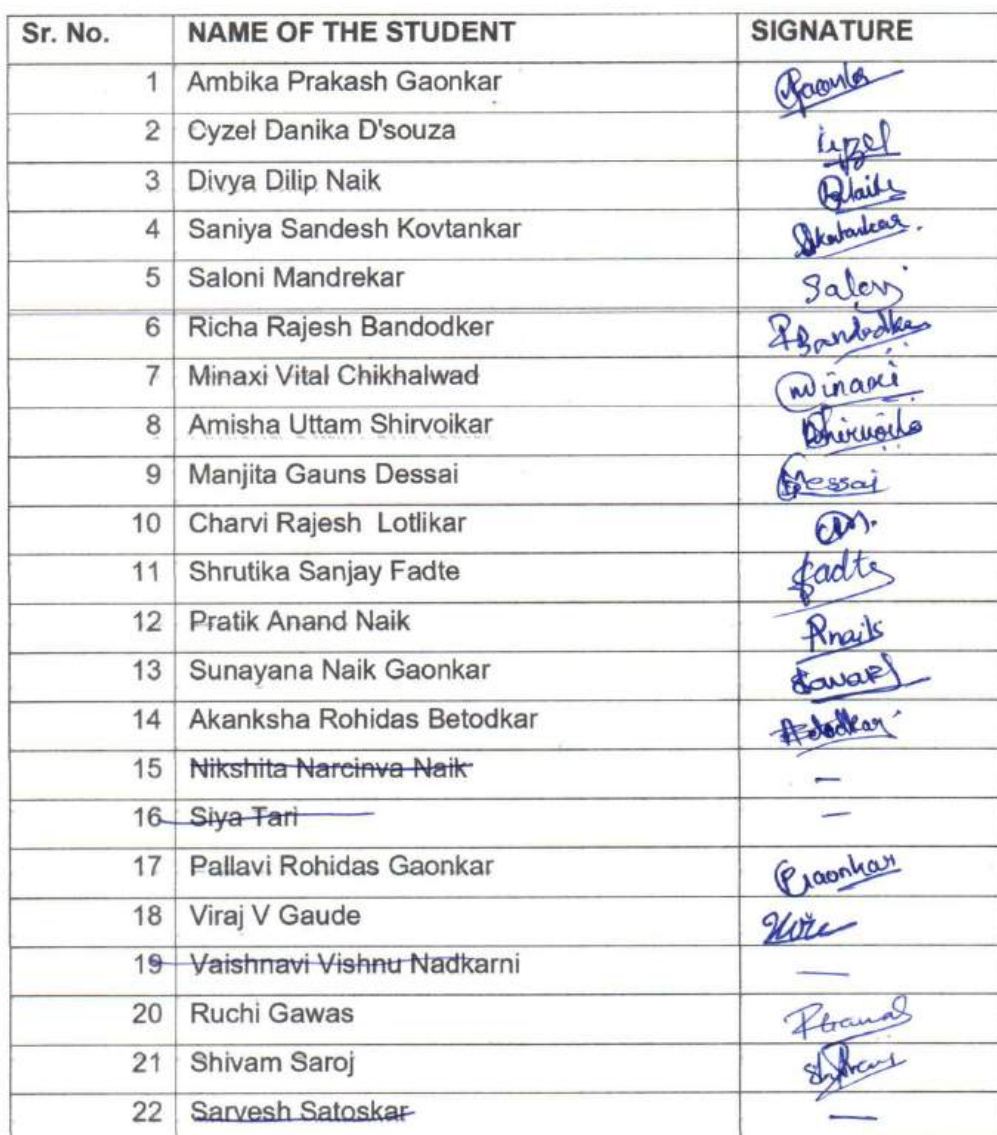 Sr. No. NAME OF THE STUDENT SIGNATURE
1 Ambika Prakash Gaonkar
2 Cyzel Danika D'souza Cyzel
3 Divya Dilip Naik
4 Saniya Sandesh Kovtankar
5 Saloni Mandrekar Saloni
6 Richa Rajesh Bandodker RBandodker
7 Minaxi Vital Chikhalwad Minaxi
8 Amisha Uttam Shirvoikar
9 Manjita Gauns Dessai Dessai
10 Charvi Rajesh Lotlikar
11 Shrutika Sanjay Fadte Fadte
12 Pratik Anand Naik PNaik
13 Sunayana Naik Gaonkar
14 Akanksha Rohidas Betodkar
15 Nikshita Narcinva Naik —
16 Siya Tari —
17 Pallavi Rohidas Gaonkar PGaonkar
18 Viraj V Gaude
19 Vaishnavi Vishnu Nadkarni —
20 Ruchi Gawas
21 Shivam Saroj
22 Sarvesh Satoskar —